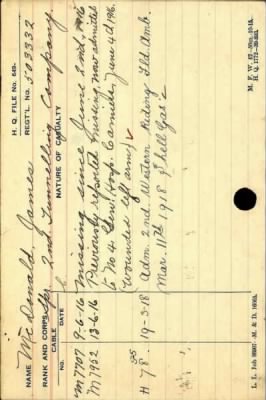 H. Q. FILE No. 649-
NAME McDonald, James
REGT'L. No. 503332
RANK AND CORPS Spr. 2nd Tunnelling Company
CABLE
No. DATE NATURE OF CASUALTY
M7707 9-6-16 Missing since June 2nd, 1916
M7922 13-6-16 Previously reported missing, now admitted
to No 4 Gen. Hosp. Camiers, June 4th 1916.
(wounded left arm)
H 78 19-3-18 Adm. 2nd Western Riding Fld. Amb.
Mar. 11th 1918 "Shell Gas"
M. F. W. 42
H. Q. 1772-39-893.
L. L. Job 89907-M. & D. 16063.